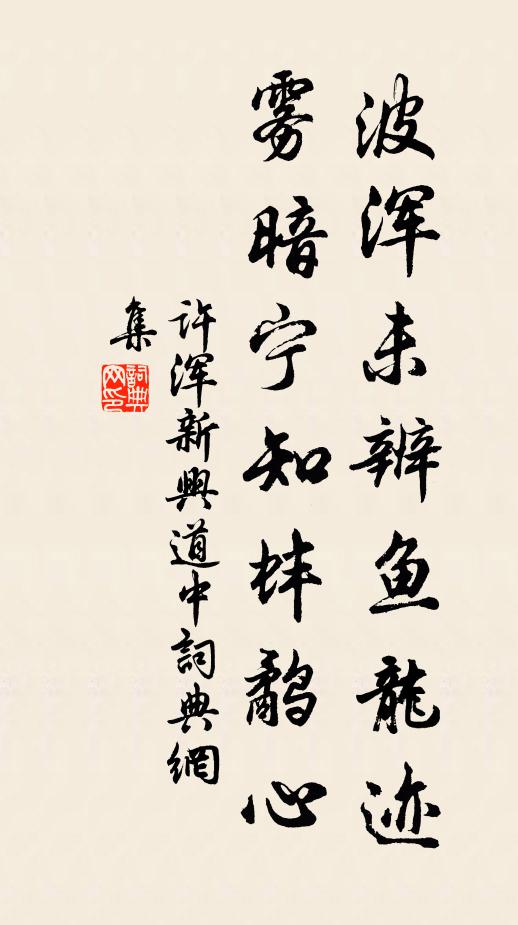 波浑未辨鱼龍迹
雾暗宁知蚌鹬心
许浑新興道中詞典網
集
詞典網印